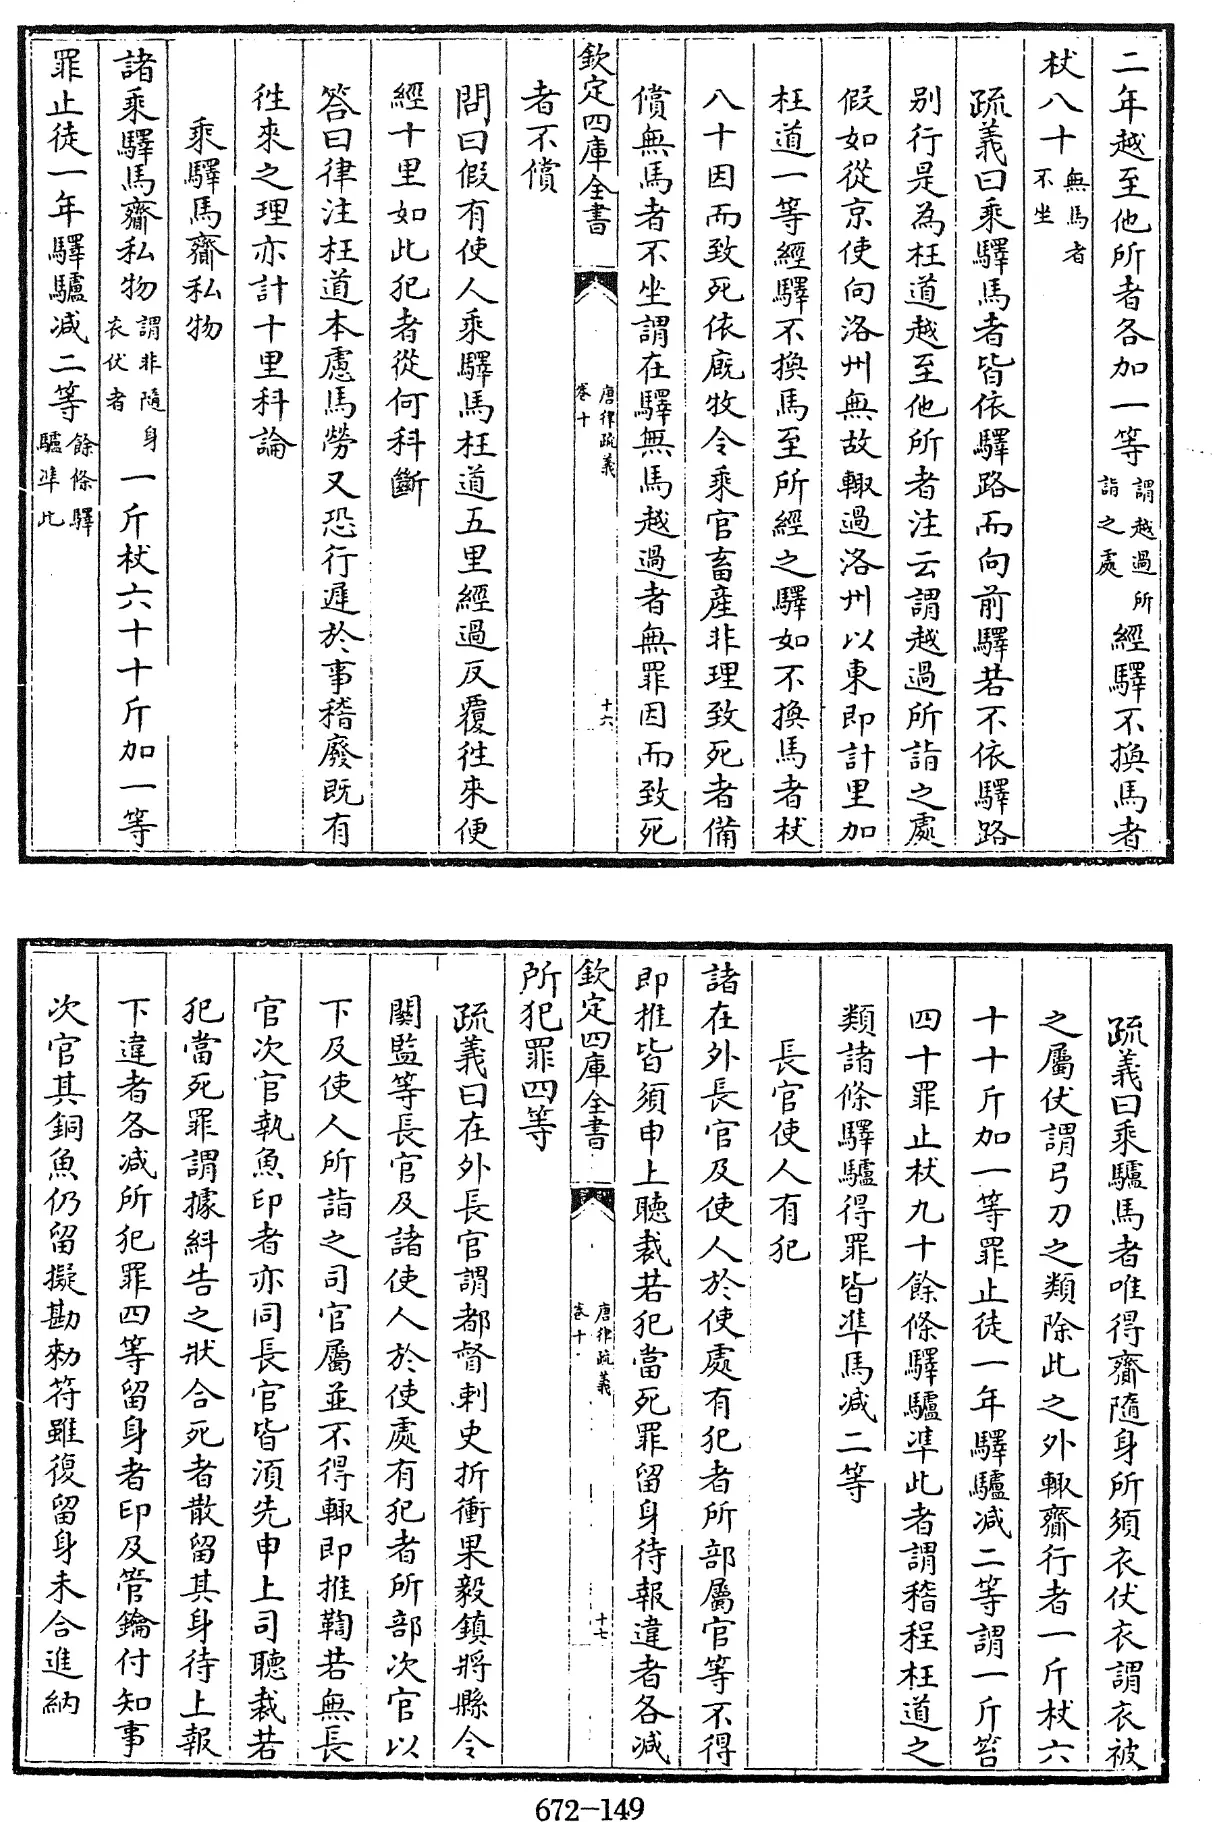 二年越至他所者各加一等謂越過所詣之處經驛不換馬者
杖八十無馬者不坐
疏義曰乘驛馬者皆依驛路而向前驛若不依驛路
别行是為枉道越至他所者注云謂越過所詣之處
假如從京使向洛州無故輙過洛州以東即計里加
枉道一等經驛不換馬至所經之驛如不換馬者杖
八十因而致死依廐牧令乘官畜產非理致死者備
償無馬者不坐謂在驛無馬越過者無罪因而致死
者不償
欽定四庫全書
唐律疏義
卷十
十六
問曰假有使人乘驛馬枉道五里經過反覆徃來便
經十里如此犯者從何科斷
答曰律注枉道本慮馬勞又恐行遲於事稽廢既有
徃來之理亦計十里科論
乘驛馬齎私物
諸乘驛馬齎私物謂非隨身衣伏者一斤杖六十十斤加一等
罪止徒一年驛驢减二等餘條驛驢準此
疏義曰乘驢馬者唯得齎隨身所須衣伏衣謂衣被
之屬伏謂弓刀之類除此之外輙齎行者一斤杖六
十十斤加一等罪止徒一年驛驢减二等謂一斤笞
四十罪止杖九十餘條驛驢準此者謂稽程枉道之
類諸條驛驢得罪皆準馬减二等
長官使人有犯
諸在外長官及使人於使處有犯者所部屬官等不得
即推皆須申上聽裁若犯當死罪留身待報違者各减
所犯罪四等
欽定四庫全書
唐律疏義
卷十
十七
疏義曰在外長官謂都督刺史折衝果毅鎮將縣令
關監等長官及諸使人於使處有犯者所部次官以
下及使人所詣之司官屬並不得輙即推鞫若無長
官次官執魚印者亦同長官皆須先申上司聽裁若
犯當死罪謂據糾告之狀合死者散留其身待上報
下違者各减所犯罪四等留身者印及管鑰付知事
次官其銅魚仍留擬勘勑符雖復留身未合進納
672-149